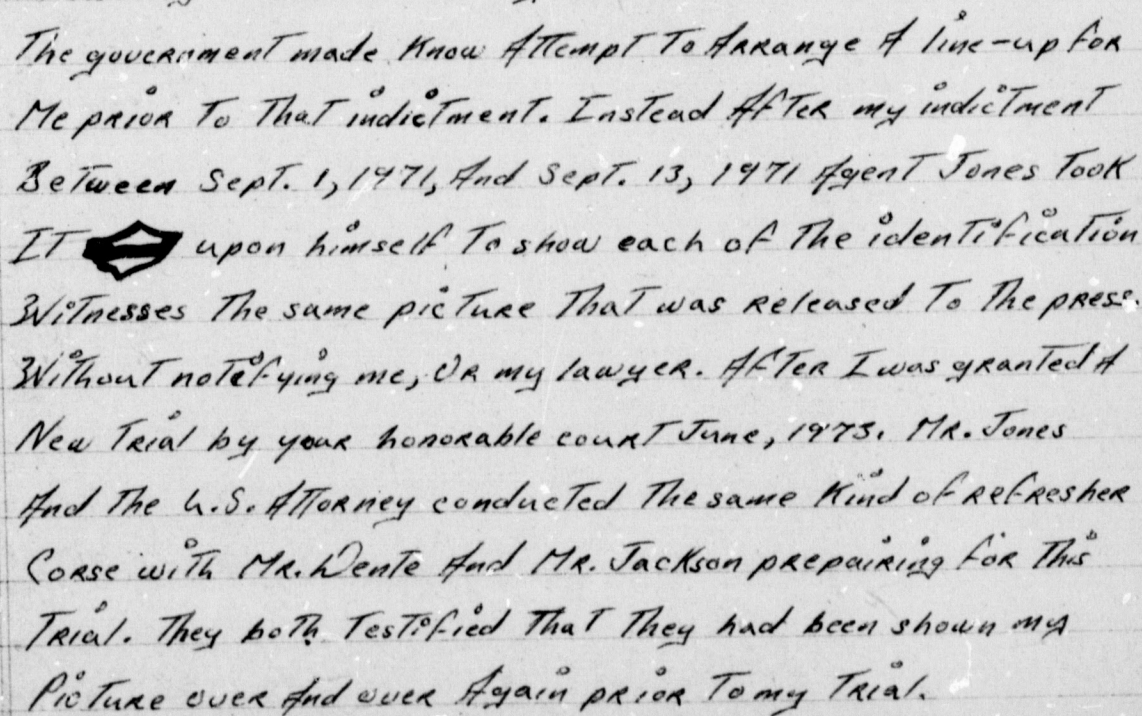 The government made Know Attempt To Arrange A line-up for
Me prior To That indictment. Instead After my indictment
Between Sept. 1, 1971, And Sept. 13, 1971 Agent Jones Took
IT upon himself To show each of The identification
Witnesses The same picture That was released To The press.
Without notefying me, Or my lawyer. After I was granted A
New Trial by your honorable court June, 1973. Mr. Jones
And The U.S. Attorney conducted The same Kind of refresher
Corse with Mr. Dente And Mr. Jackson prepairing for This
Trial. They both Testified That They had been shown my
Picture over And over Again prior To my Trial.